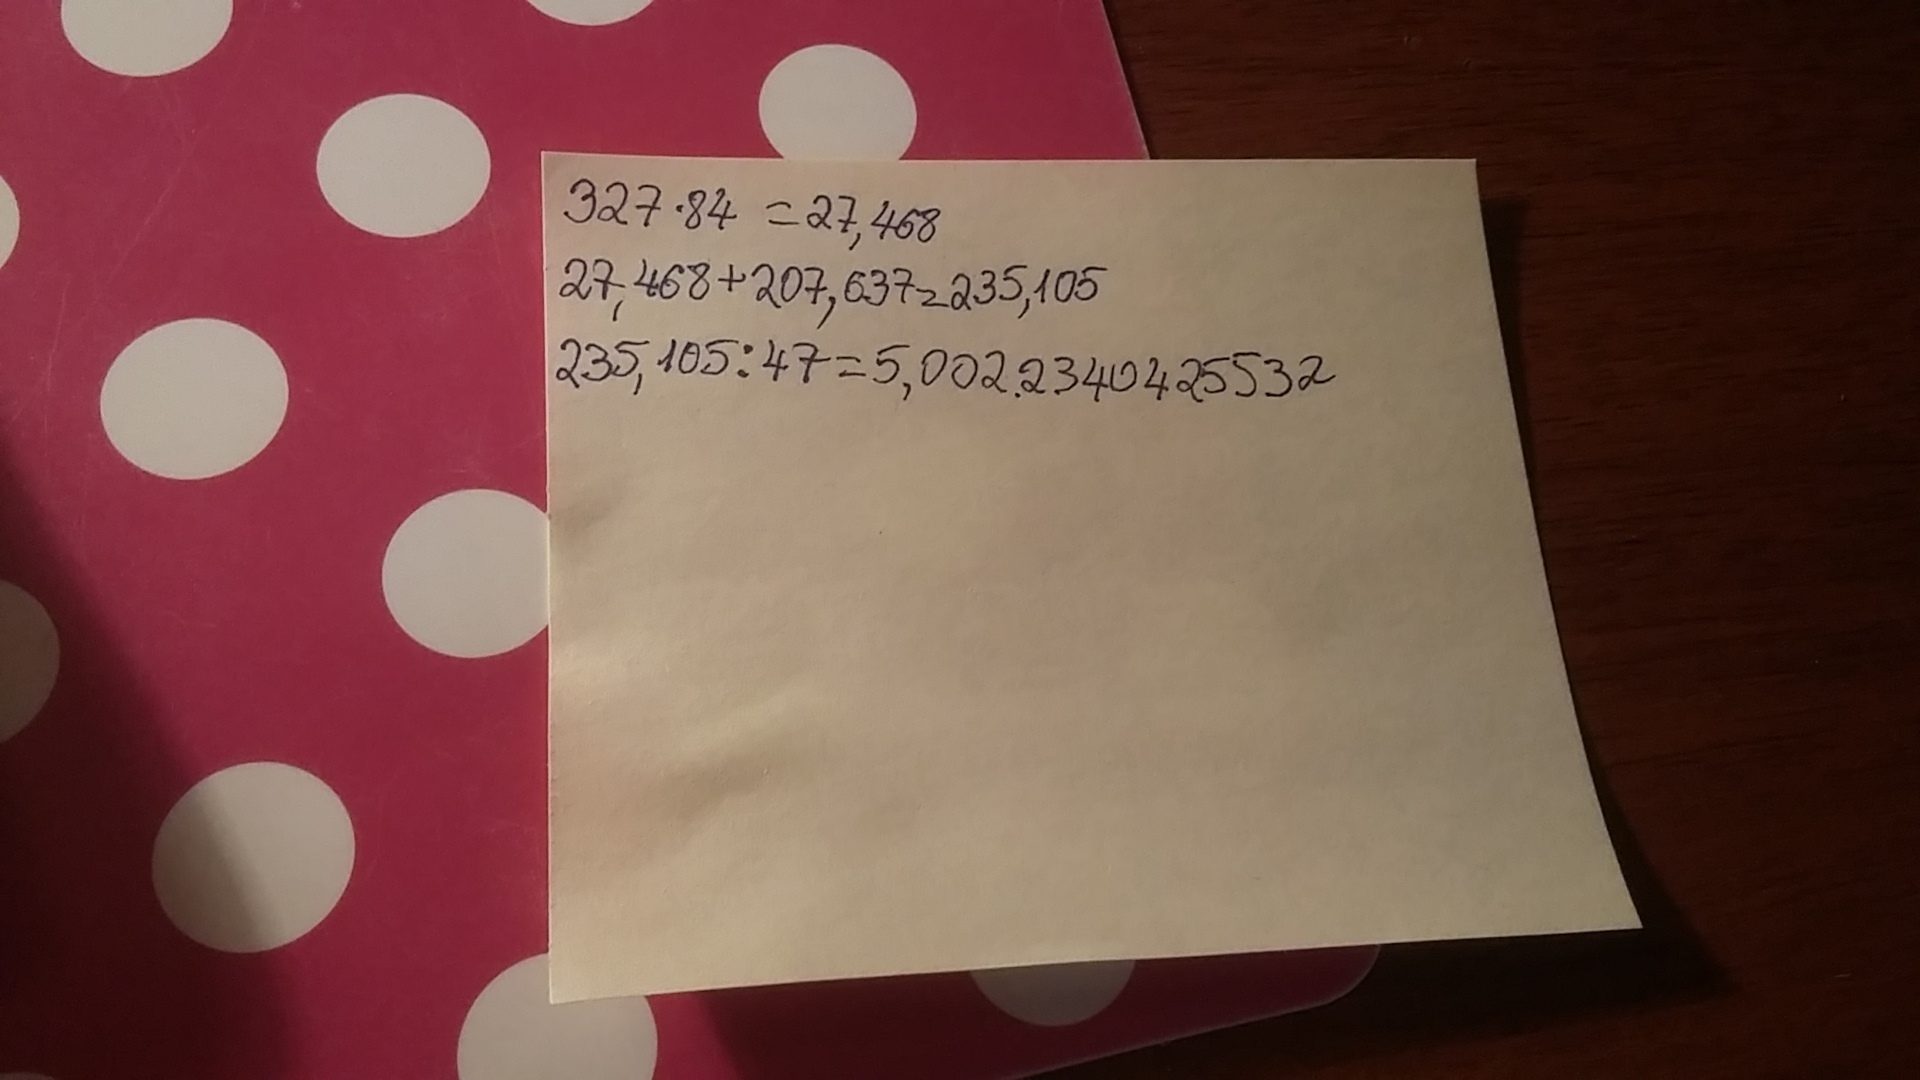 327·84 =27,468
27,468+207,637=235,105
235,105:47=5,002.2340425532